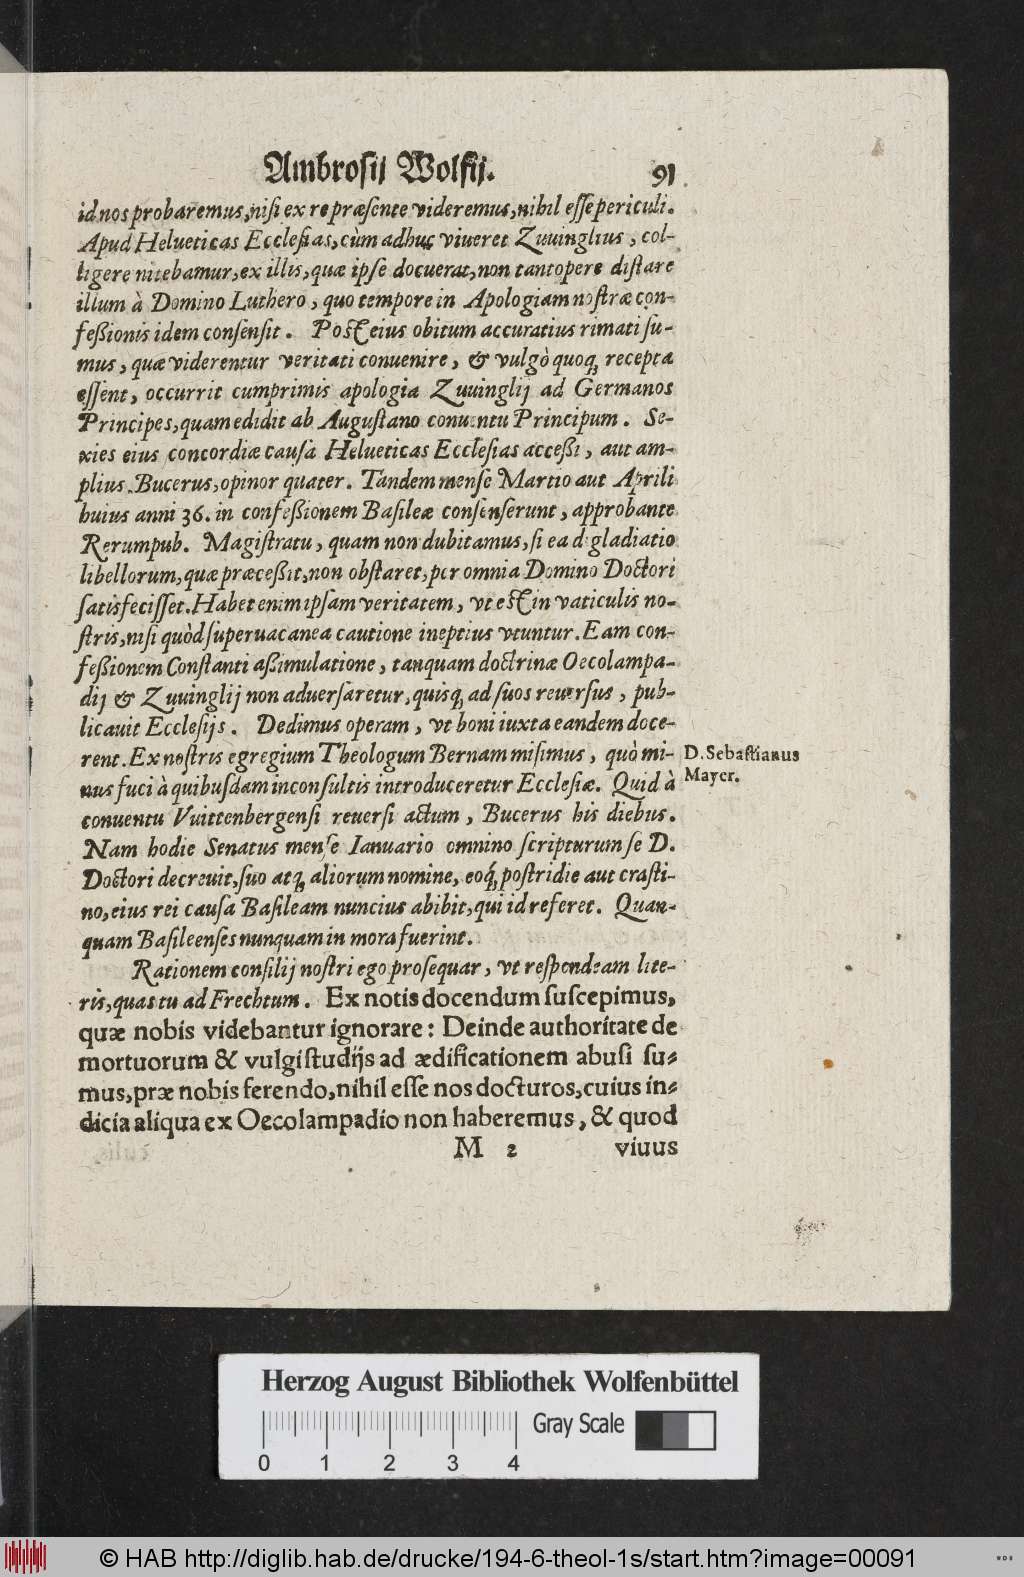 Ambrosij Wolfij. 91
id nos probaremus, nisi ex re præsente videremus, nihil esse periculi.
Apud Helueticas Ecclesias, cùm adhuc viueret Zuuinglius, col-
ligere nitebamur, ex illis, quæ ipse docuerat, non tantopere distare
illum à Domino Luthero, quo tempore in Apologiam nostræ con-
feßionis idem consensit. Post eius obitum accuratius rimati su-
mus, quæ viderentur veritati conuenire, & vulgò quoq; recepta
essent, occurrit cumprimis apologia Zuuinglij ad Germanos
Principes, quam edidit ab Augustano conuentu Principum. Se-
xies eius concordiæ causa Helueticas Ecclesias acceßi, aut am-
plius. Bucerus, opinor quater. Tandem mense Martio aut Aprili
huius anni 36. in confeßionem Basileæ consenserunt, approbante
Rerumpub. Magistratu, quam non dubitamus, si ea digladiatio
libellorum, quæ præceßit, non obstaret, per omnia Domino Doctori
satisfecisset. Habet enim ipsam veritatem, vt est in vaticulis no-
stris, nisi quòd superuacanea cautione ineptius vtuntur. Eam con-
feßionem Constanti aßimulatione, tanquam doctrinæ Oecolampa-
dij & Zuuinglij non aduersaretur, quisq; ad suos reuersus, pub-
licauit Ecclesijs. Dedimus operam, vt boni iuxta eandem doce-
rent. Ex nostris egregium Theologum Bernam misimus, quò mi-
nus fuci à quibusdam inconsultis introduceretur Ecclesiæ. Quid à
D. Sebastianus
Mayer.
conuentu Vuittenbergensi reuersi actum, Bucerus his diebus.
Nam hodie Senatus mense Ianuario omnino scripturum se D.
Doctori decreuit, suo atq; aliorum nomine, eoq́; postridie aut crasti-
no, eius rei causa Basileam nuncius abibit, qui id referet. Quan-
quam Basileenses nunquam in mora fuerint.
Rationem consilij nostri ego prosequar, vt respondeam lite-
ris, quas tu ad Frechtum. Ex notis docendum suscepimus,
quæ nobis videbantur ignorare: Deinde authoritate de
mortuorum & vulgi studijs ad ædificationem abusi su-
mus, præ nobis ferendo, nihil esse nos docturos, cuius in-
dicia aliqua ex Oecolampadio non haberemus, & quod
M 2 viuus
Herzog August Bibliothek Wolfenbüttel
Gray Scale
0 1 2 3 4
© HAB http://diglib.hab.de/drucke/194-6-theol-1s/start.htm?image=00091